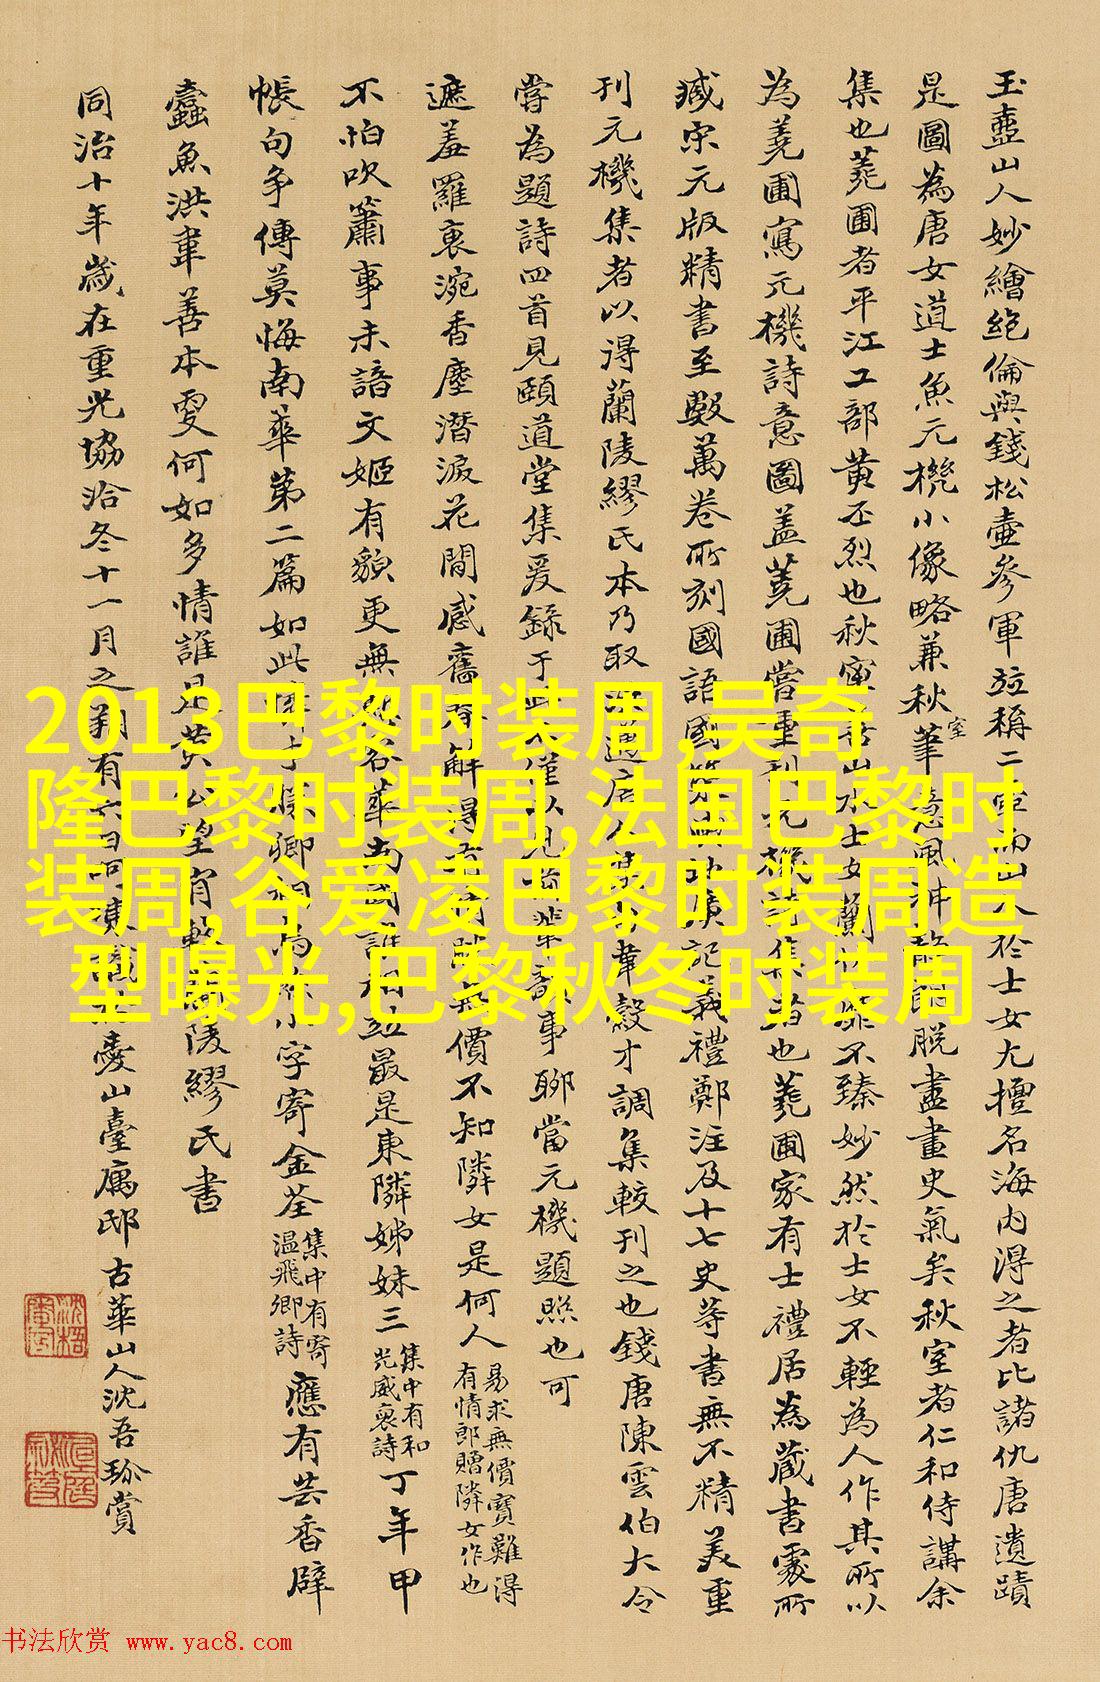 玉壺山人妙繪絕倫與錢松壺參軍並稱二而山人於士女尤擅名海內得之者比諸仇唐遺蹟
是圖為唐女道士魚元機小像略兼秋室筆意風神朗脫盡畫史氣矣秋室者仁和侍講余
集也蕘圃者平江工部黃丕烈也秋室善山水士女蘭不臻妙然於士女不輕為人作其所以
為蕘圃寫元機詩意圖蓋蕘圃嘗重刊元機詩集者也蕘圃家有士禮居為藏書處所
臧宋元版精書至數萬卷所刻國語國策廣記義禮鄭注及十七史等書無不精美重
刊元機集者以得蘭陵繆氏本乃取唐人韋縠才調集較刊之也錢唐陳雲伯大令
嘗為題詩四首見頤道堂集爰錄于此不僅以見事聊當元機題照也可
遮羞羅裹涴香塵潛淚花間感舊解得無價不知隣女是何人易求無價寶難得有情郎贈隣女作也
不怕吹簫事未諳文姬有貌更無容華南國誰相並最是東隣姊妹三集中有和光威裒詩丁年甲
帳句爭傳莫悔南華第二篇如此卿小字寄金荃集中有寄溫飛卿詩應有芸香辟
蠹魚洪韋善本更何如多情誰是黃公望肯較蘭陵繆氏書
同治十年歲在重光協洽冬十一月之朔有六日同山臺寓邸古華山人沈吾珍賞
2013巴黎时装周,吴奇
隆巴黎时装周,法国巴黎时
装周,谷爱凌巴黎时装周造
型曝光,巴黎秋冬时装周
书法欣赏 www.yac8.com